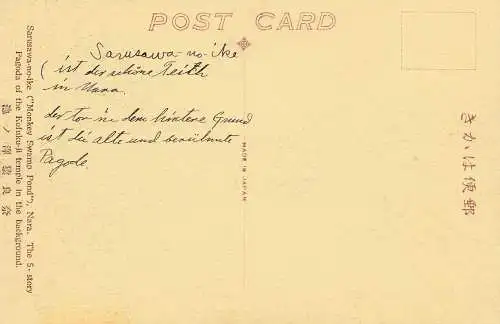 POST CARD
Sarusawa-no-ike
(ist der schöne Teith
in Nara.
der Tor in dem hintere Grund
ist die alte und berühmte
Pagode.
MADE IN JAPAN
きかは便郵
Sarusawa-no-ike ("Monkey Swamp Pond"), Nara. The 5-story
Pagoda of the Kufuku-ji temple in the background.
池ノ澤猿良奈